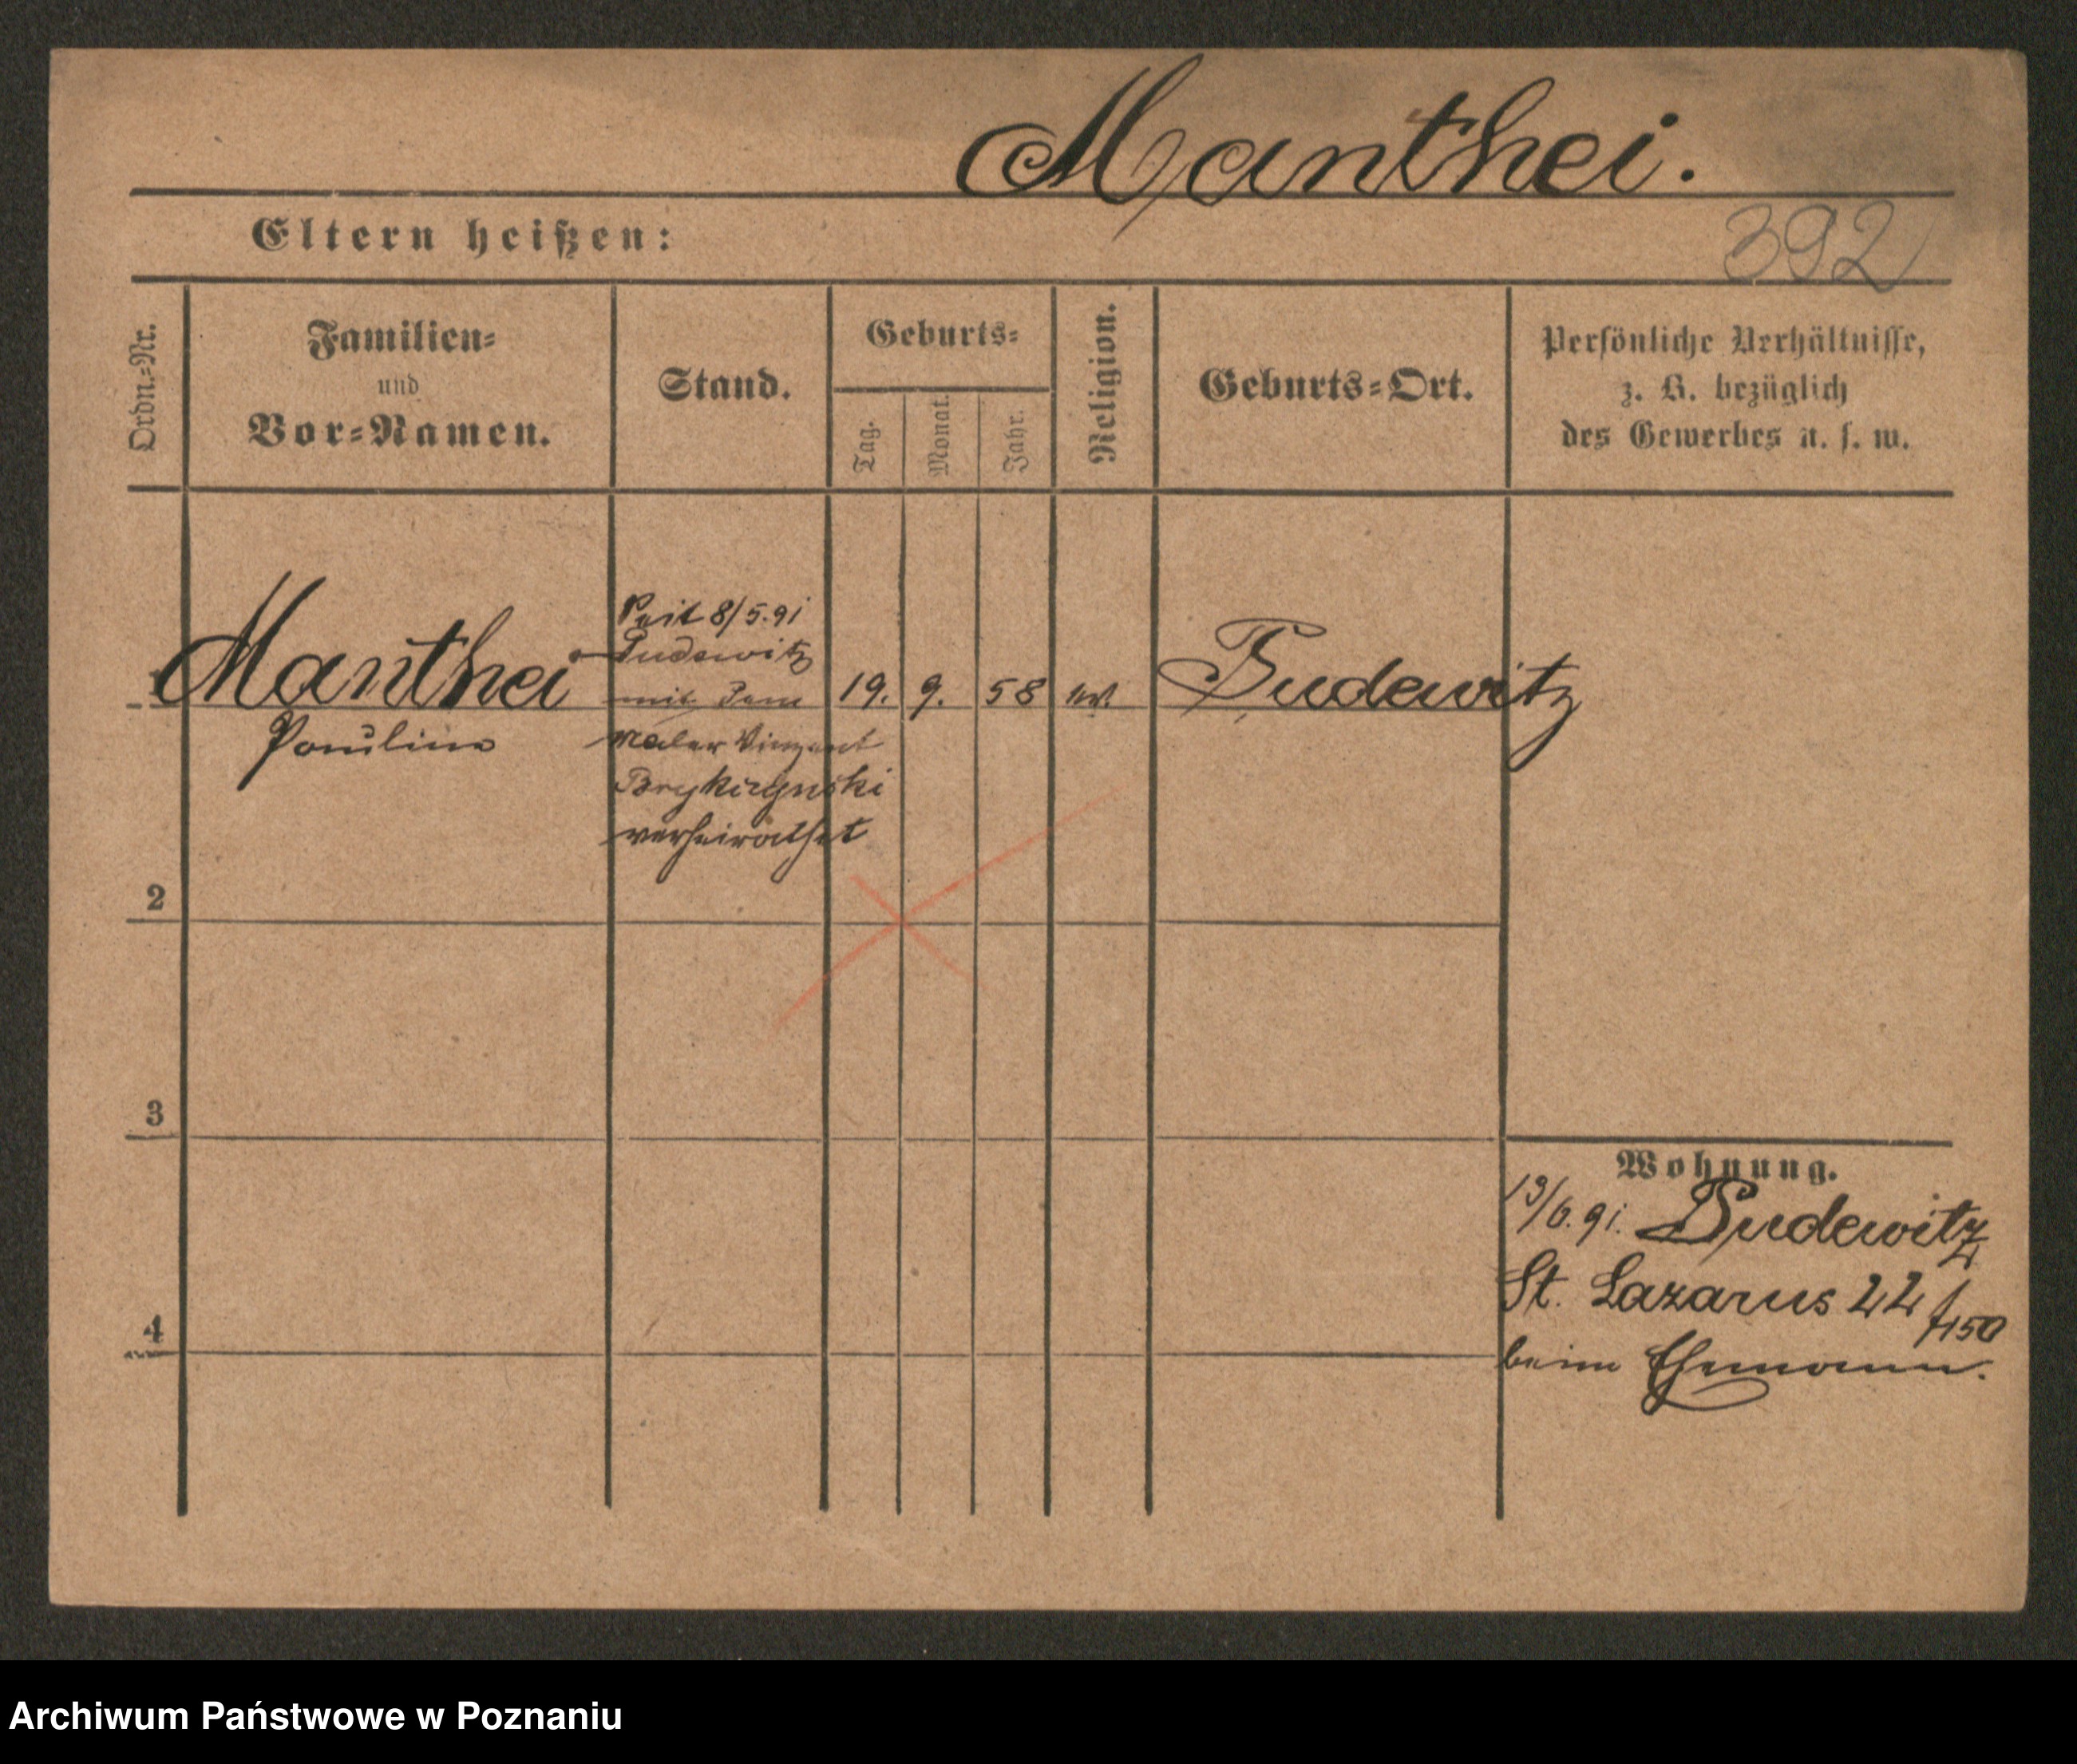 Manthei.
Eltern heißen:
392
Ordn.-Nr.
Familien-
und
Vor-Namen.
Stand.
Geburts-
Tag.
Monat.
Jahr.
Religion.
Geburts-Ort.
Persönliche Verhältnisse,
z. B. bezüglich
des Gewerbes u. s. w.
1 Manthei
Pauline
Seit 8/5.91
Pudewitz
mit dem
Maler Vinzent
verheirathet
19. 9. 58 ev. Pudewitz
2
3
4
Wohnung.
13/6. 91. Pudewitz
St. Lazarus 22
beim Ehemann.
Archiwum Państwowe w Poznaniu